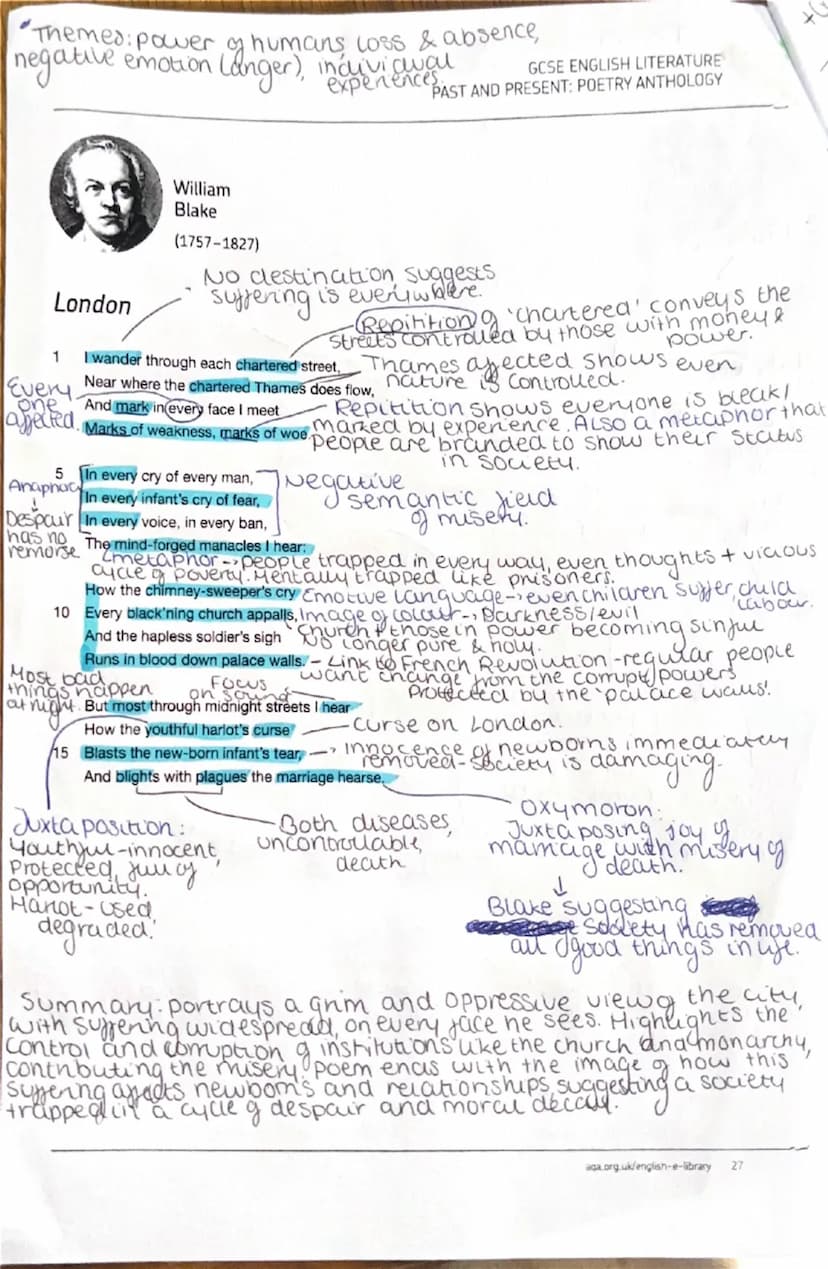 Themes: power of humans, loss & absence,
negative emotion (anger), individual
experiences.
GCSE ENGLISH LITERATURE
PAST AND PRESENT: POETRY ANTHOLOGY
William
Blake
(1757–1827)
No destination suggests
suffering is everywhere.
London
Repitition of 'chartered' conveys the
streets controlled by those with money &
power.
1 I wander through each chartered street,
Thames affected shows even
nature is controlled.
Near where the chartered Thames does flow,
Every
one
affected.
And mark in every face I meet
Repitition shows everyone is bleak/
marked by experience. Also a metaphor that
people are branded to show their status
in society.
Marks of weakness, marks of woe.
5 In every cry of every man,
Negative
semantic field
of misery.
Anaphora
In every infant's cry of fear,
Despair
has no
remorse
In every voice, in every ban,
The mind-forged manacles I hear:
metaphor -> people trapped in every way, even thoughts + vicious
cycle of poverty. Mentally trapped like prisoners.
How the chimney-sweeper's cry
Emotive language -> even children suffer, child
labour.
10 Every black'ning church appalls,
Image of colour -> Darkness/evil
Church + those in power becoming sinful
No longer pure & holy.
And the hapless soldier's sigh
Runs in blood down palace walls.
- Link to French Revolution - regular people
want change from the corrupt/powers
protected by the 'palace walls'.
Most bad
things happen
at night.
Focus
on sound
But most through midnight streets I hear
How the youthful harlot's curse
curse on London.
15 Blasts the new-born infant's tear,
-> Innocence of newborns immediately
removed - society is damaging.
And blights with plagues the marriage hearse.
Juxtaposition:
Youthful - innocent,
Protected, full of
opportunity.
Harlot - used,
degraded.
Both diseases,
uncontrollable,
death
Oxymoron:
Juxtaposing joy of
marriage with misery of
death.
↓
Blake suggesting
Society has removed
all good things in life.
Summary: portrays a grim and oppressive view of the city,
with suffering widespread, on every face he sees. Highlights the
control and corruption of institutions like the church and monarchy,
contributing the misery. Poem ends with the image of how this
suffering affects newborns and relationships, suggesting a society
trapped in a cycle of despair and moral decay.
aqa.org.uk/english-e-library 27